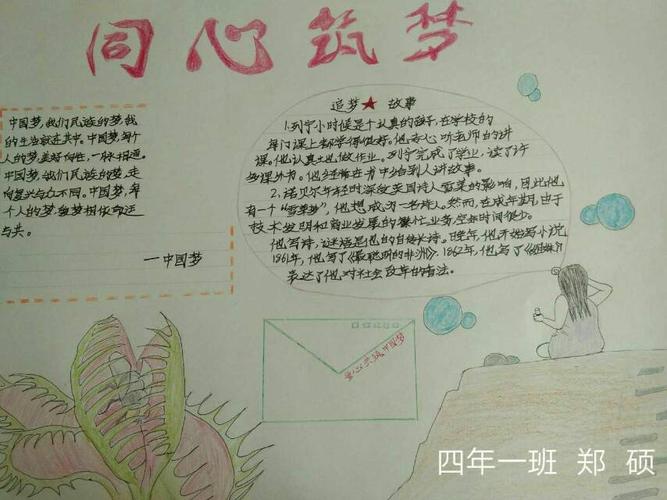 同心筑梦
中国梦,我们民族的梦,我
的生活就在其中。中国梦,每个
人的梦,美好向往,一脉相通。
中国梦,我们民族的梦,走
向复兴与众不同。中国梦,每
个人的梦,
与共。
——中国梦
追梦★故事
1.列宁小时候是个认真的孩子,在学校的
每门课上都学得很好。他专心听老师的讲
课。他认真地做作业。列宁完成了学业,读了许
多课外书。他经常在书中给别人讲故事。
2.诺贝尔年轻时深受英国诗人雪莱的影响,因此他
有一个“雪莱梦”,他想成为一名诗人。然而,在成年期,由于
技术发明和商业发展的繁忙业务,空余时间很少。
他写诗,谜语是他的自传长诗。晚年,他开始写小说
1861年,他写了《最聪明的非洲》,1862年,他写了《姐妹》
表达了他对社会改革的看法。
童心共筑中国梦
四年一班 郑 硕